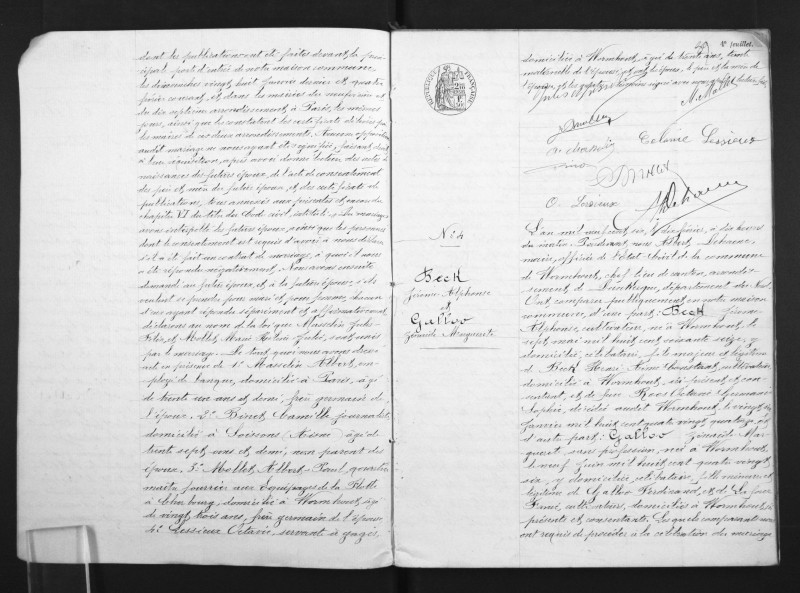 dont les publications ont été faites devant la prin-
cipale porte d'entrée de notre maison commune
les dimanches vingt huit janvier dernier et quatre
février courant, et dans les mairies des
du dix septième arrondissement à Paris, les mêmes
jours, ainsi que le constatent les certificats délivrés par
les maires de ces deux arrondissements. Aucune opposition
audit mariage ne nous ayant été signifiée, faisant droit
à leur réquisition, après avoir donné lecture des actes de
naissance des futurs époux, de l'acte de consentement
des père et mère du futur époux, et des certificats de
publications, tous annexés aux présentes et encore du
chapitre VI du titre du Code civil, intitulé : du mariage
avons interpellé les futurs époux, ainsi que les personnes
dont le consentement est requis d'avoir à nous déclarer
s'il a été fait un contrat de mariage, à quoi il nous
a été répondu négativement. Nous avons ensuite
demandé au futur époux, et à la future épouse s'ils
veulent se prendre pour mari et pour femme, chacun
d'eux ayant répondu séparément et affirmativement,
déclarons au nom de la loi que Masselin Jules
Félix, et Mollet Marie sont unis
par le mariage. Le tout quoi nous avons dressé
acte en présence de 1° Masselin Albert, em-
ployé de banque, domicilié à Paris, âgé
de trente un ans et demi, frère germain de
l'époux. 2° Camille, journalier,
domicilié à Soissons (Aisne) âgé de
trente sept ans et demi, non parent des
époux, 3° Mollet, Albert Paul, quartier
maître fourrier aux Equipages de la Flotte
à Cherbourg, domicilié à Wormhout, âgé
de vingt trois ans, frère germain de l'épouse
4° Lessieux Octavie, servante à gages,
REPUBLIQUE FRANÇAISE
N° 4
Beck
Jérôme Alphonse
et
Galloo
Zénaïde Marguerite
4e feuillet.
domiciliée à Wormhout, âgée de trente ans, tante
maternelle de l'épouse, et ont les époux, le père et la mère de
l'épouse, et les quatre témoins signé avec nous après lecture faite
M. Mollet
Lessieux
O. Lessieux
L'an mil neuf cent six, le dix février, à dix heures
du matin. Par devant, nous Albert Dehaene,
maire, officier de l'état civil de la commune
de Wormhout, chef lieu de canton, arrondis-
sement de Dunkerque, département du Nord.
Ont comparu publiquement en notre maison
commune, d'une part : Beck Jérôme
Alphonse, cultivateur, né à Wormhout, le
sept mai mil huit cent soixante seize, y
domicilié, célibataire, fils majeur et légitime
de Beck Henri Aimé Constant, cultivateur
domicilié à Wormhout, ici présent et con-
sentant, et de feue Roos Octavie Germaine
Sophie, décédée audit Wormhout, le vingt
janvier mil huit cent quatre vingt quatorze, et
d'autre part : Galloo Zénaïde Mar-
guerite, sans profession, née à Wormhout,
le neuf juin mil huit cent quatre vingt
six, y domiciliée, célibataire, fille mineure et
légitime de Galloo Ferdinand, et de
cultivateurs, domiciliés à Wormhout, ici
présents et consentants. Lesquels comparants nous
ont requis de procéder à la célébration du mariage